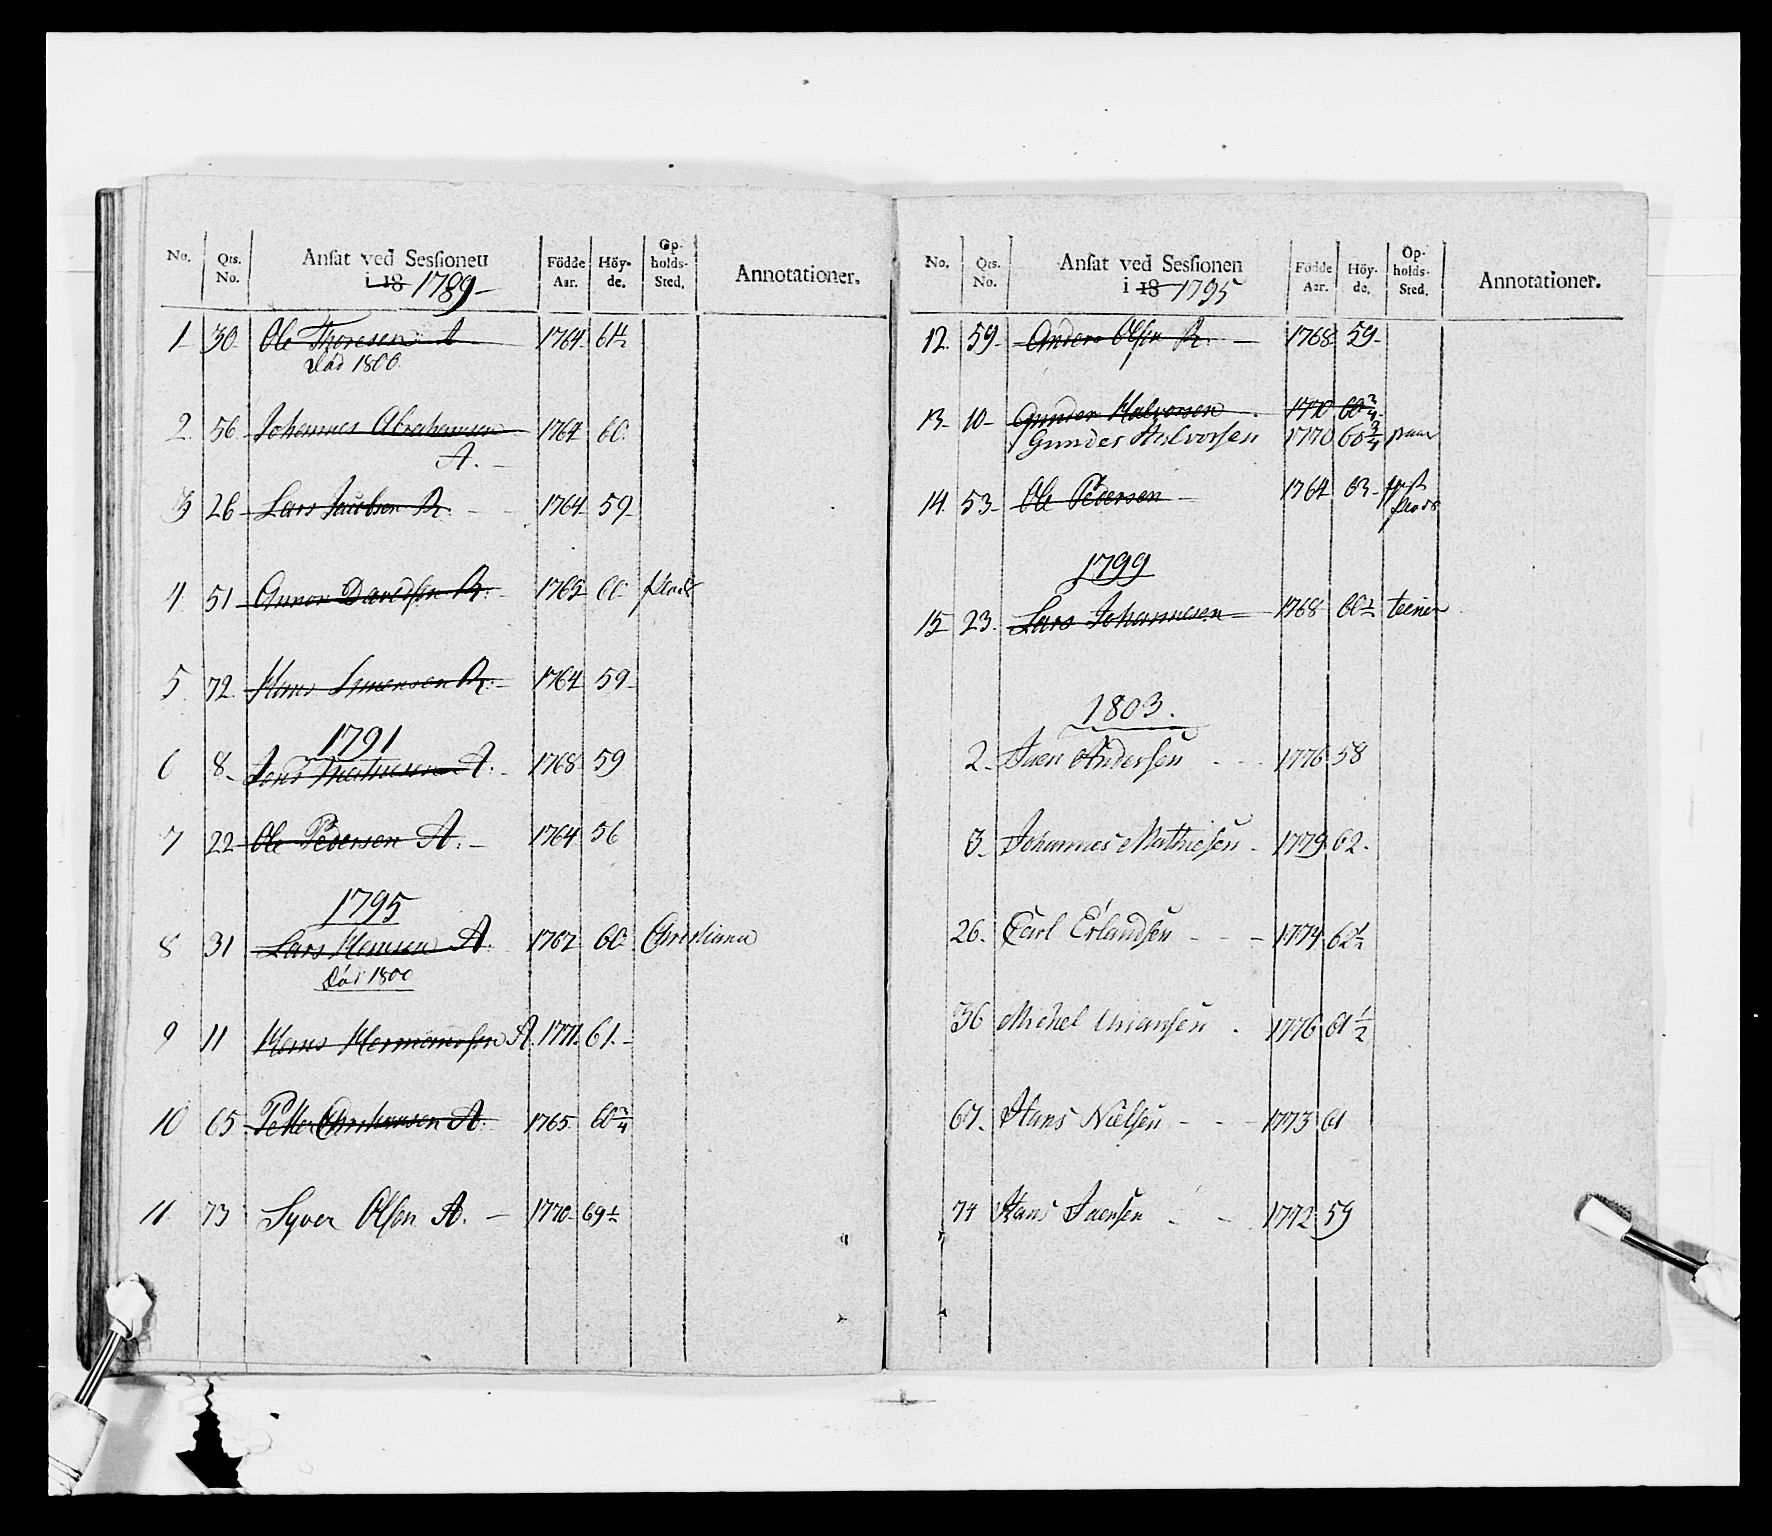 No. Qts. No. Ansat ved Sessionen i 18 1789 Födde Aar. Höyde. Opholds-Sted. Annotationer.
1 30 Ole Thoresen A 1764 61½
Död 1800
2 56 Johannes Abrahamsen 1764 60
A.
3 26 Lars Jacobsen R. 1764 59
4 51 Gunner Davidsen R. 1765 60
5 72 Hans Simensen R. 1764 59
1791
6 8 Mathiesen A. 1768 59
7 22 Ole Pedersen A. 1764 56
1795
8 31 Lars Hansen A. 1767 60 Christiania
Död 1800
9 11 Hans Hermansen A. 1771 61
10 65 Petter Christiansen A. 1765 60¾
11 73 Syver Olsen A. 1770 69½
No. Qts. No. Ansat ved Sessionen i 18 1795 Födde Aar. Höyde. Opholds-Sted. Annotationer.
12 59 Anders Olsen R. 1768 59
13 10 Gunder Halvorsen 1770 60¾
Gunder Halvorsen 1770 60¾
14 53 Ole Pedersen 1764 63
1799
15 23 Lars Johannesen 1768 60½
1803.
2 Jaen Andersen 1776 58
3 Johannes Mathiesen 1779 62
26 Carl Erlandsen 1774 62½
36 Michel 1776 61½
67 Hans Nielsen 1773 61
74 Hans Jaensen 1772 59